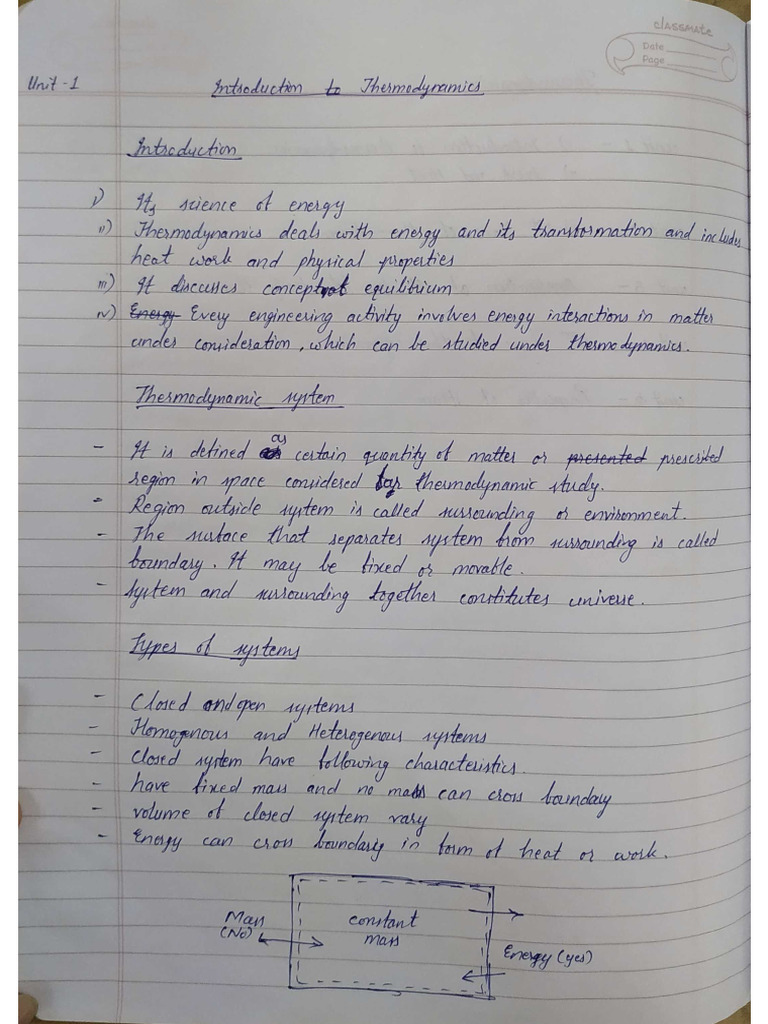 classmate
Date
Page
Unit-1 Introduction to Thermodynamics
Introduction
i) Its science of energy
ii) Thermodynamics deals with energy and its transformation and includes
heat work and physical properties
iii) It discusses concept of equilibrium
iv) Energy Every engineering activity involves energy interactions in matter
under consideration, which can be studied under thermodynamics.
Thermodynamic system
as
- It is defined certain quantity of matter or presented prescribed
region in space considered for thermodynamic study.
- Region outside system is called surrounding or environment.
- The surface that separates system from surrounding is called
boundary. It may be fixed or movable.
- System and surrounding together constitutes universe.
Types of systems
- Closed and open systems
- Homogenous and Heterogenous systems
- Closed system have following characteristics.
- have fixed mass and no mass can cross boundary
- volume of closed system vary
- Energy can cross boundary in form of heat or work.
Mass
(No)
constant
mass
Energy (yes)